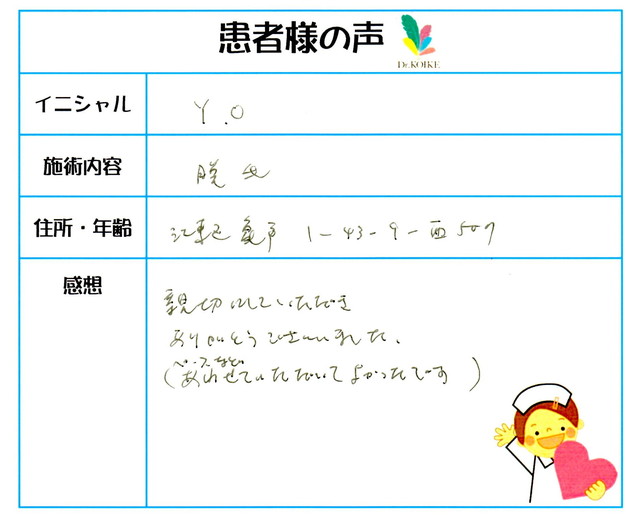 患者様の声
Dr.KOIKE
イニシャル
Y.O
施術内容
脱毛
住所・年齢
江東区亀戸 1-43-9-西507
感想
親切にしていただき
ありがとうございました。
ペースなど
(あわせていただいてよかったです)